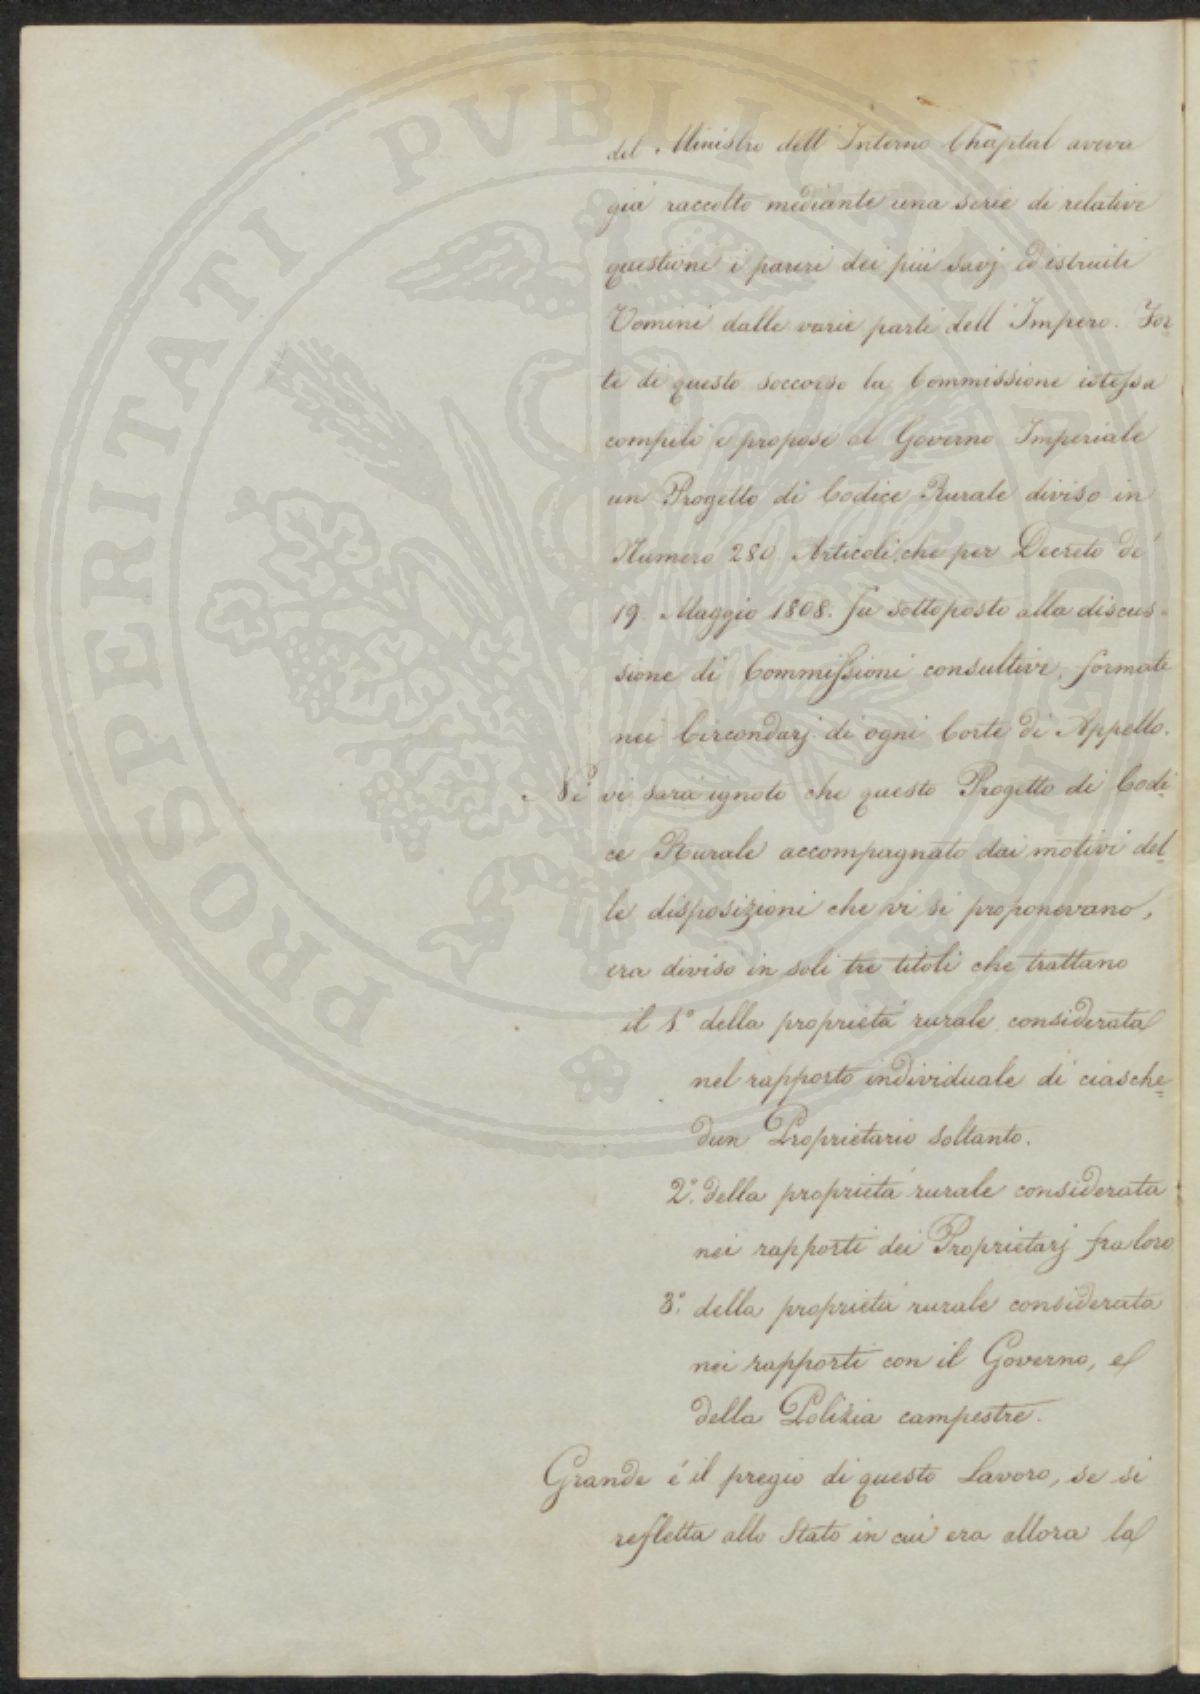 del Ministro dell'Interno Chaptal aveva
già raccolto mediante una serie di relative
questioni i pareri dei più savj ed istruiti
Uomini dalle varie parti dell'Impero. For=
te di questo soccorso la Commissione istessa
compilò e propose al Governo Imperiale
un Progetto di Codice Rurale diviso in
Numero 280. Articoli, che per Decreto de'
19. Maggio 1808. fu sottoposto alla discus=
sione di Commissioni consultive, formate
nei Circondarj di ogni Corte di Appello.
Nè vi sarà ignoto che questo Progetto di Codi=
ce Rurale accompagnato dai motivi del=
le disposizioni che vi si proponevano,
era diviso in soli tre titoli che trattano
il 1.° della proprietà rurale considerata
nel rapporto individuale di ciasche=
dun Proprietario soltanto.
2.° della proprietà rurale considerata
nei rapporti dei Proprietarj fra loro
3.° della proprietà rurale considerata
nei rapporti con il Governo, e
della Polizia campestre.
Grande è il pregio di questo Lavoro, se si
refletta allo Stato in cui era allora la
PROSPERITATI PUBLICAE